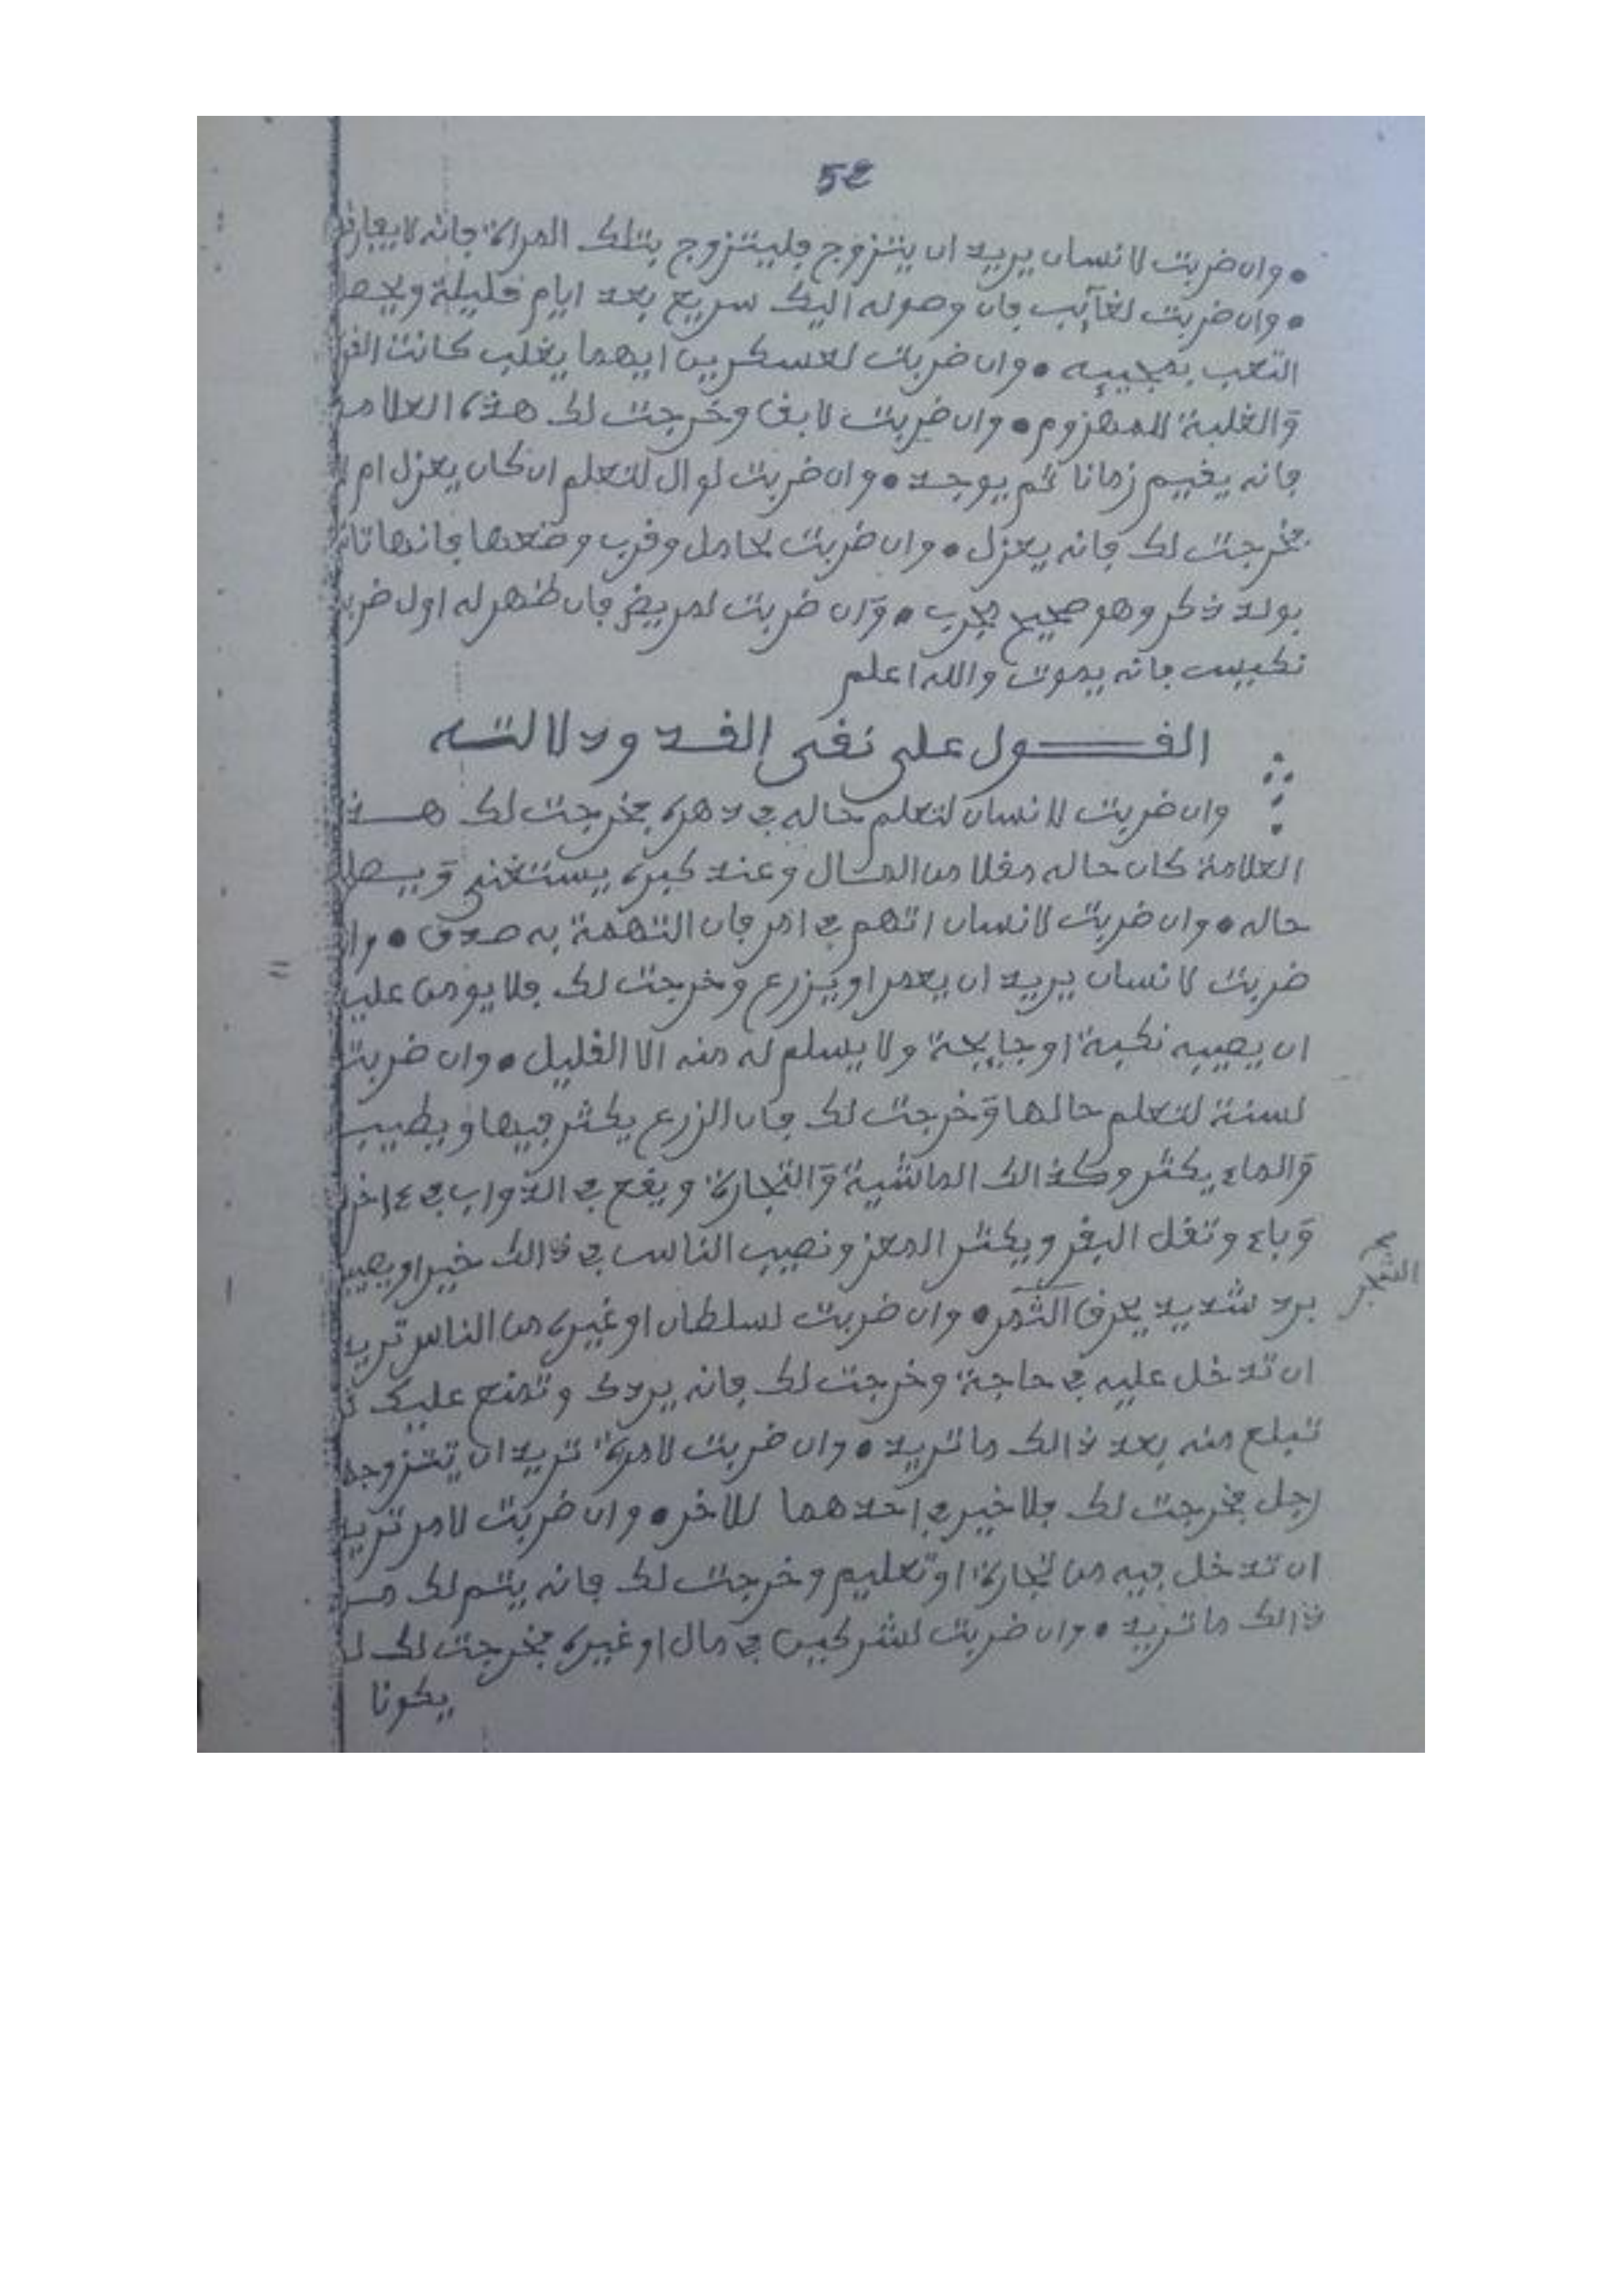 52
• وان ضربت لانسان يريد ان يتزوج فليتزوج بتلك المراة فانه لا يفارق
• وان ضربت لغآئب فان وصوله اليك سريع بعد ايام قليلة ويحصل
التعب بمجيئه • وان ضربت لعسكرين ايهما يغلب كانت
والغلبة للمهزوم • وان ضربت لابق وخرجت لك هذه العلامة
فانه يقيم زمانا ثم يوجد • وان ضربت لوال لتعلم ان كان يعزل ام لا
فخرجت لك فانه يعزل • وان ضربت لحامل وقرب وضعها فانها تاتي
بولد ذكر وهو صحيح مجرب • وان ضربت لمريض فان ظهر له اول ضرب
نكيس فانه يموت والله اعلم
القول على نقى الخد ودلالته
وان ضربت لانسان لتعلم حاله في دهره فخرجت لك هذه
العلامة كان حاله مقلا من المال وعند كبره يستغنى ويصلح
حاله • وان ضربت لانسان اتهم في امر فان التهمة به صدق • وان
ضربت لانسان يريد ان يعمر او يزرع وخرجت لك فلا يومن عليه
ان يصيبه نكبة او جايحة ولا يسلم له منه الا القليل • وان ضربت
لسنة لتعلم حالها وخرجت لك فان الزرع يكثر فيها ويطيب
والماء يكثر وكذالك الماشية والتجارة ويقع في الدواب في ءاخر
وباء وتقل البقر ويكثر المعز ونصيب الناس في ذالك خيرا ويصيب
برد شديد يحرق الثمر • وان ضربت لسلطان او غيره من الناس تريد
الشجر
ان تدخل عليه في حاجة وخرجت لك فانه يردك وتمنع عليك
تبلغ منه بعد ذالك ما تريد • وان ضربت لامرة تريد ان يتزوجها
رجل فخرجت لك فلا خير في احدهما للاخر • وان ضربت لامر تريد
ان تدخل فيه من تجارة او تعليم وخرجت لك فانه يتم لك من
ذالك ما تريد • وان ضربت لشركيين في مال او غيره فخرجت لك
يكونا